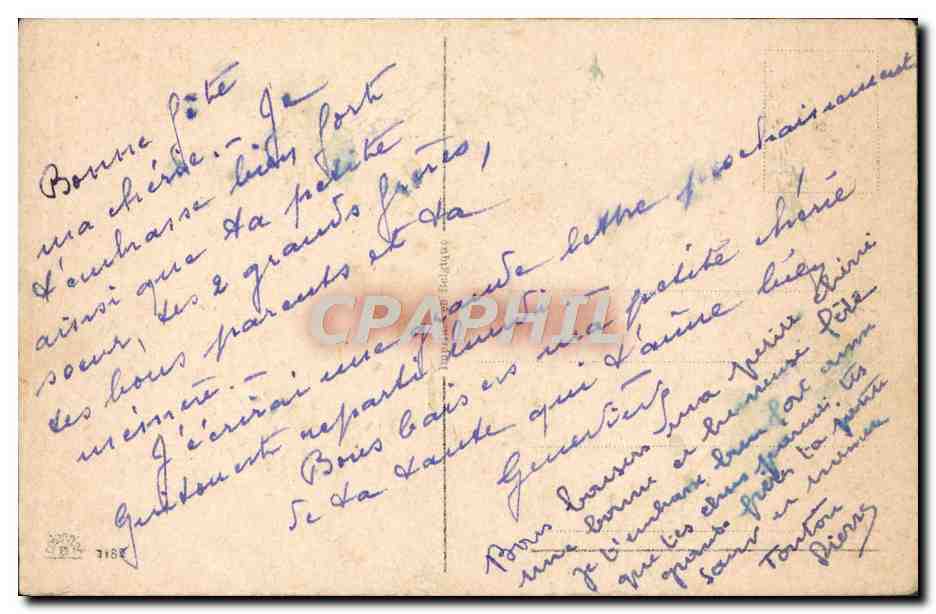 Bonne fête
ma chérie. - Je
t'embrasse bien fort
ainsi que ta petite
soeur, tes 2 grands frères,
tes bons parents et ta
mémère. -
J'écrirai une grande lettre prochainement
est reparti lundi !
Bons baisers ma petite chérie
de ta tante qui t'aime bien
Geneviève
Bons baisers ma petite chérie
une bonne et heureuse fête
je t'embrasse bien fort ainsi
que tes chers parents, tes
grands frères ta petite
sœur et mémère
Tonton
Pierre
Imprimé en Belgique
CPAPHIL